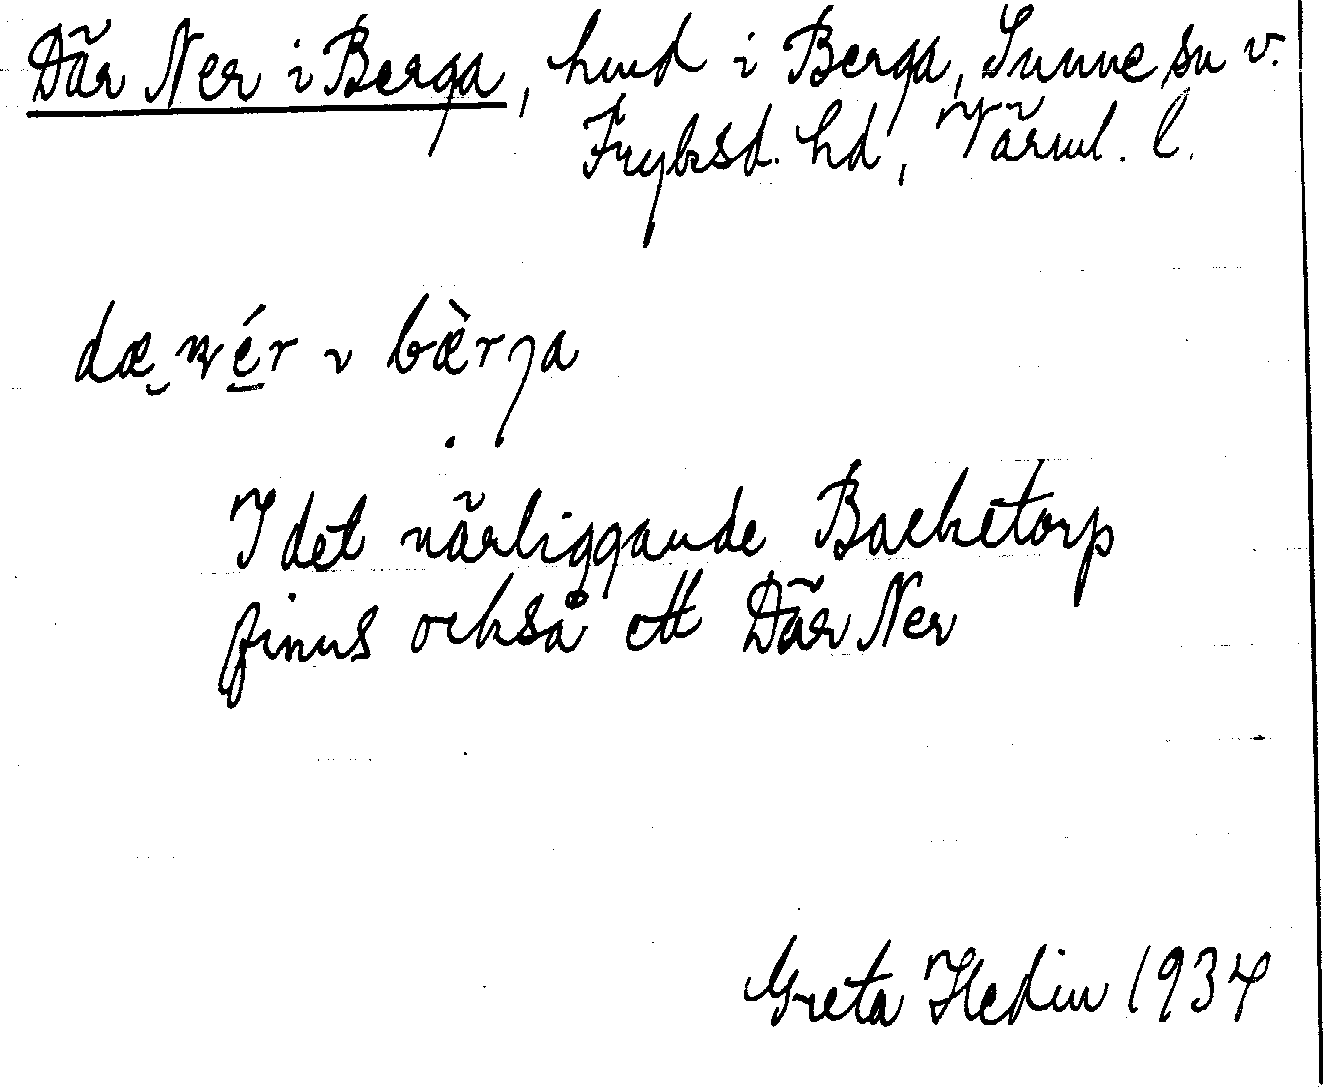 Där Ner i Berga, hmd i Berga, Sunne sn v.
Fryksd. hd, Värml. l.
dæ nér ı bæ̀rja
I det närliggande Backetorp
finns också ett Där Ner
Greta Hedin 1934